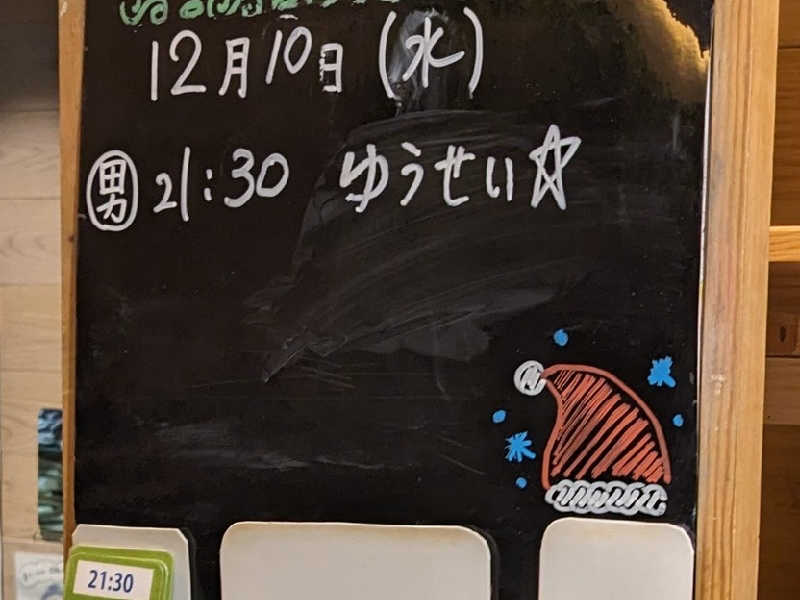 12月10日(水)
男 21:30 ゆうせい☆
21:30